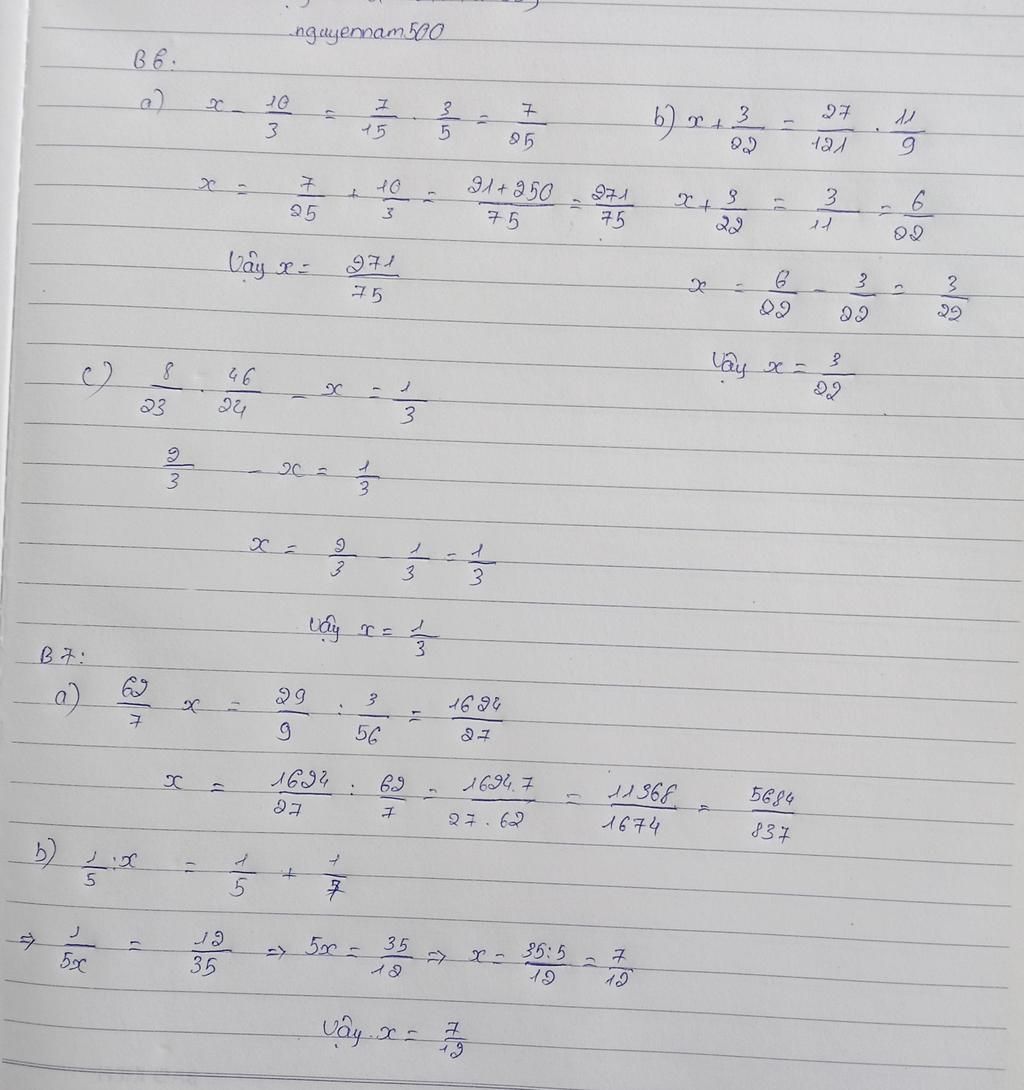 nguyennam500
B6:
a) x - 10/3 = 7/15 . 3/5 = 7/25
x = 7/25 + 10/3 = 21+250/75 = 271/75
Vậy x = 271/75
b) x + 3/22 = 27/121 . 11/9
x + 3/22 = 3/11 = 6/22
x = 6/22 - 3/22 = 3/22
Vậy x = 3/22
c) 8/23 . 46/24 - x = 1/3
2/3 - x = 1/3
x = 2/3 - 1/3 = 1/3
Vậy x = 1/3
B7:
a) 62/7 x = 29/9 : 3/56 = 1624/27
x = 1624/27 : 62/7 = 1624.7/27.62 = 11368/1674 = 5684/837
b) 1/5 : x = 1/5 + 1/7
⇒ 1/5x = 12/35 ⇒ 5x = 35/12 ⇒ x = 35:5/12 = 7/12
Vậy x = 7/12